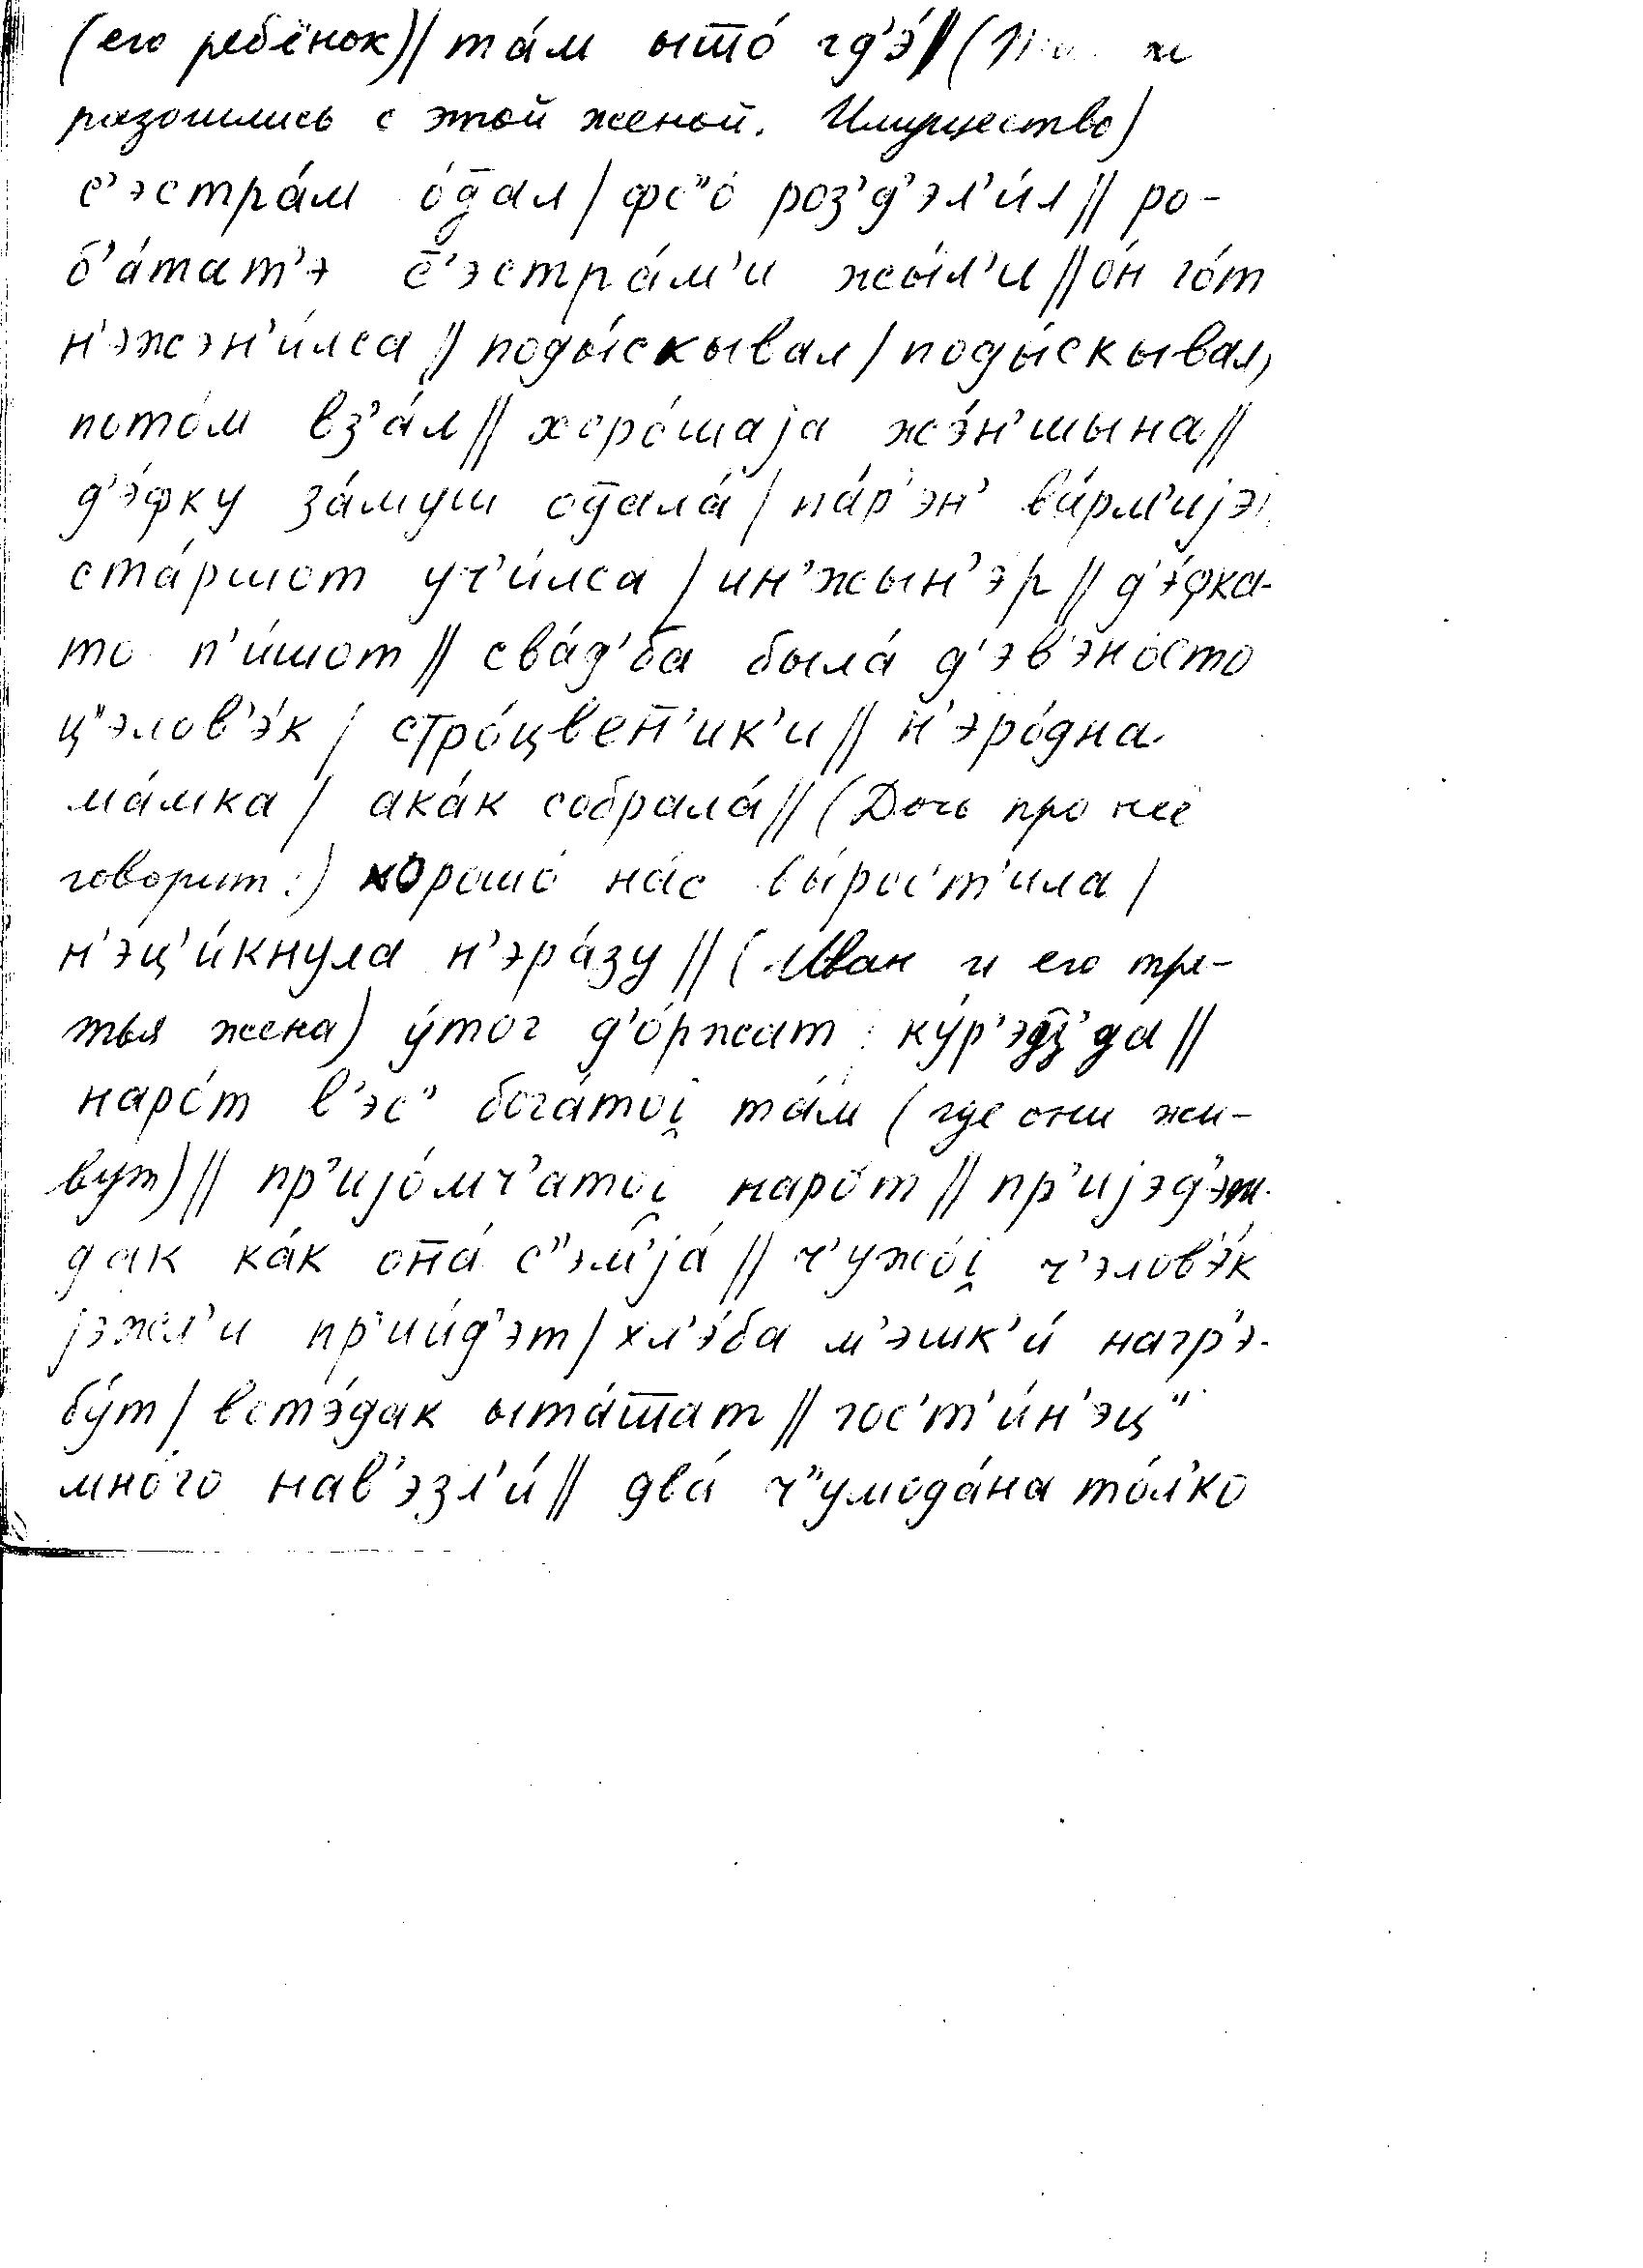 (его ребёнок)// та́м ыт̅о́ гд’э́// (
разошлись с этой женой. Имущество)
с̅’эстра́м о́д̅ал / фс”о́ роз’д’эл’и́л // ро-
б’а́тат’э с̅’эстра́м’и жы́л’и // о́н го́т
н’эжэн’и́лса // поды́скывал / поды́скывал,
пото́м вз’а́л // хоро́шаjа жэ́н’шына //
д’э́фку за́муш од̅ала́ / па́р’эн’ ва́рм’иjэ/
ста́ршот уч’и́лса / ин’жын’э́р // д’э́фка-
то п’и́шот // сва́д’ба была́ д’эв’эно́сто
ц”элов’э́к / стро́цвет̅’ик’и // н’эро́дна
ма́мка / ака́к собрала́ // (Дочь про неё
говорит:) хорошо́ на́с вы́рос’т’ила /
н’эц’и́кнула н’эра́зу // (Иван и его тре-
тья жена) у́тог д’о́ржат кур’эд̅з̅’да //
наро́т в’эс” бога́тоi̯ та́м (где они жи-
вут) // пр’иjо́мч’атоi̯ наро́т // пр’иjэд’эж-
дак ка́к одна́ с”эм’jа́ // ч’ужо́i̯ ч’элов’э́к
jэжл’и пр’ии́д’эт / хл’э́ба м’эшк’и́ нагр’э-
бу́т / встэ́дак ыта́т̅ат // гос’т’и́н’эц”
мно́го нав’эзл’и́ // два́ ч”умода́на то́л’ко